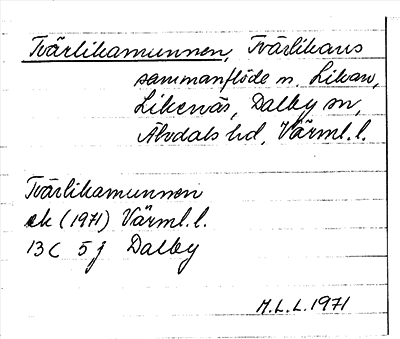 Tvärlikamunnen, Tvärlikans
sammanflöde m. Likan,
Likenäs, Dalby sn,
Älvdals hd, Värml. l.
Tvärlikamunnen
ek (1971) Värml. l.
13C 5j Dalby
M.L.L. 1971